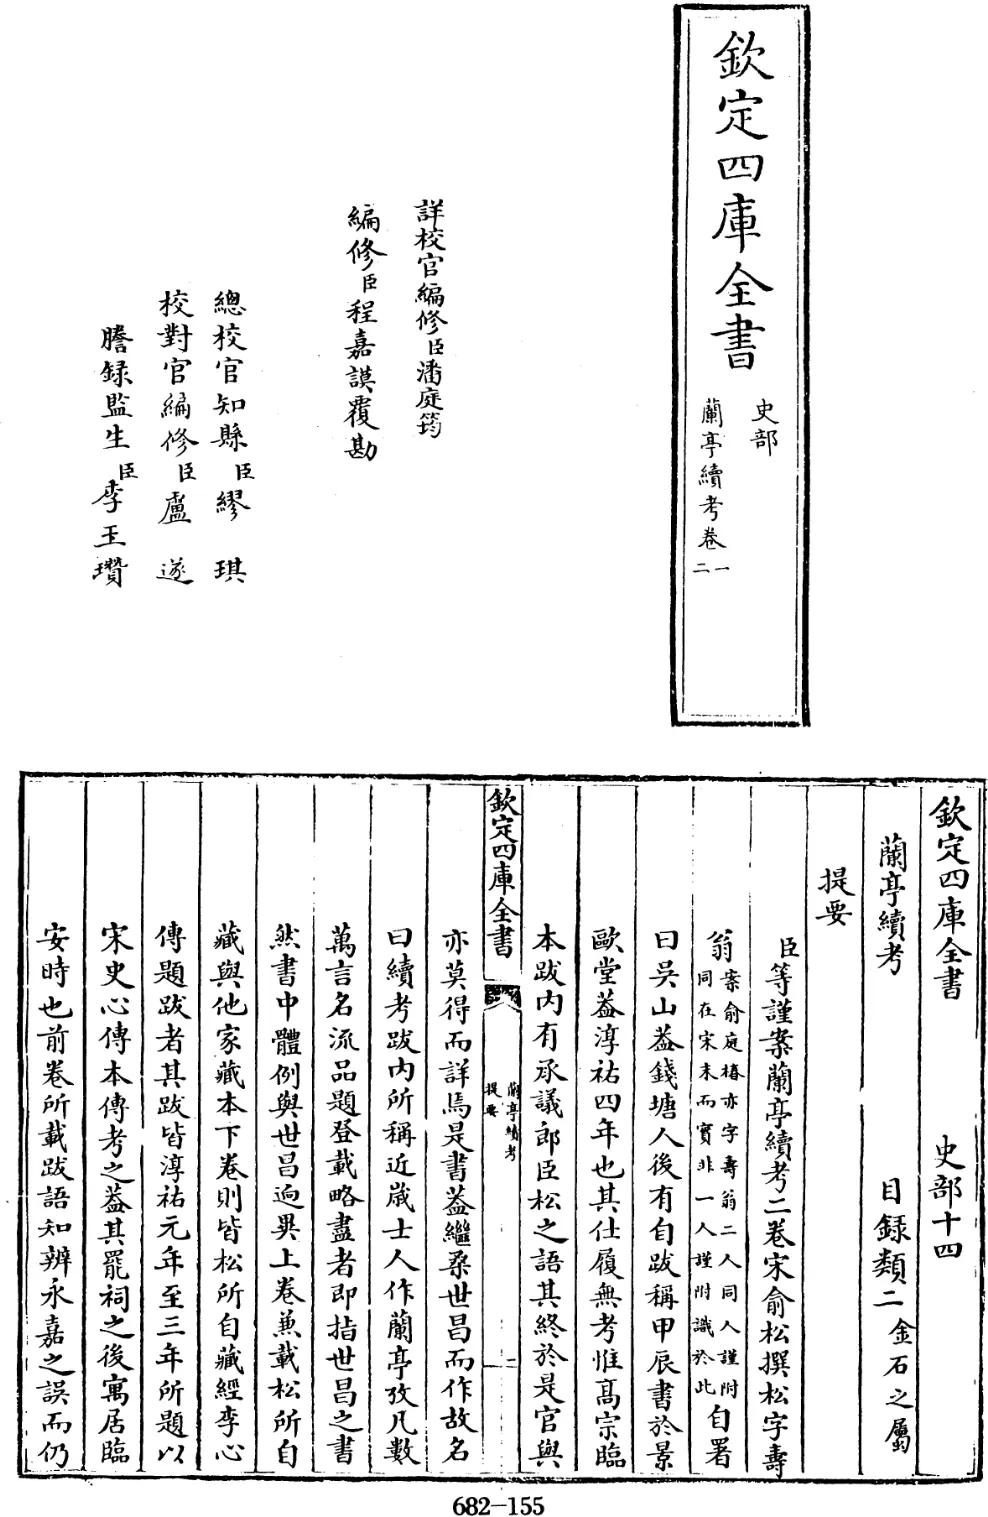 欽定四庫全書
史部
蘭亭續考卷一
二
詳校官編修臣潘庭筠
編修臣程嘉謨覆勘
總校官知縣臣繆琪
校對官編修臣盧遂
謄録監生臣李玉瓚
欽定四庫全書 史部十四
蘭亭續考 目録類二金石之屬
提要
臣等謹案蘭亭續考二卷宋俞松撰松字壽
翁案俞庭椿亦字壽翁二人同
同在宋末而實非一人謹附識於此自署
曰吳山蓋錢塘人後有自跋稱甲辰書於景
歐堂蓋淳祐四年也其仕履無考惟髙宗臨
本跋内有承議郎臣松之語其終於是官與
欽定四庫全書
蘭亭續考
提要
二
亦莫得而詳焉是書蓋繼桑世昌而作故名
曰續考跋内所稱近嵗士人作蘭亭攷凡數
萬言名流品題登載略盡者即指世昌之書
然書中體例與世昌逈異上卷兼載松所自
藏與他家藏本下卷則皆松所自藏經李心
傳題跋者其跋皆淳祐元年至三年所題以
宋史心傳本傳考之蓋其罷祠之後寓居臨
安時也前卷所載跋語知辨永嘉之誤而仍
682-155